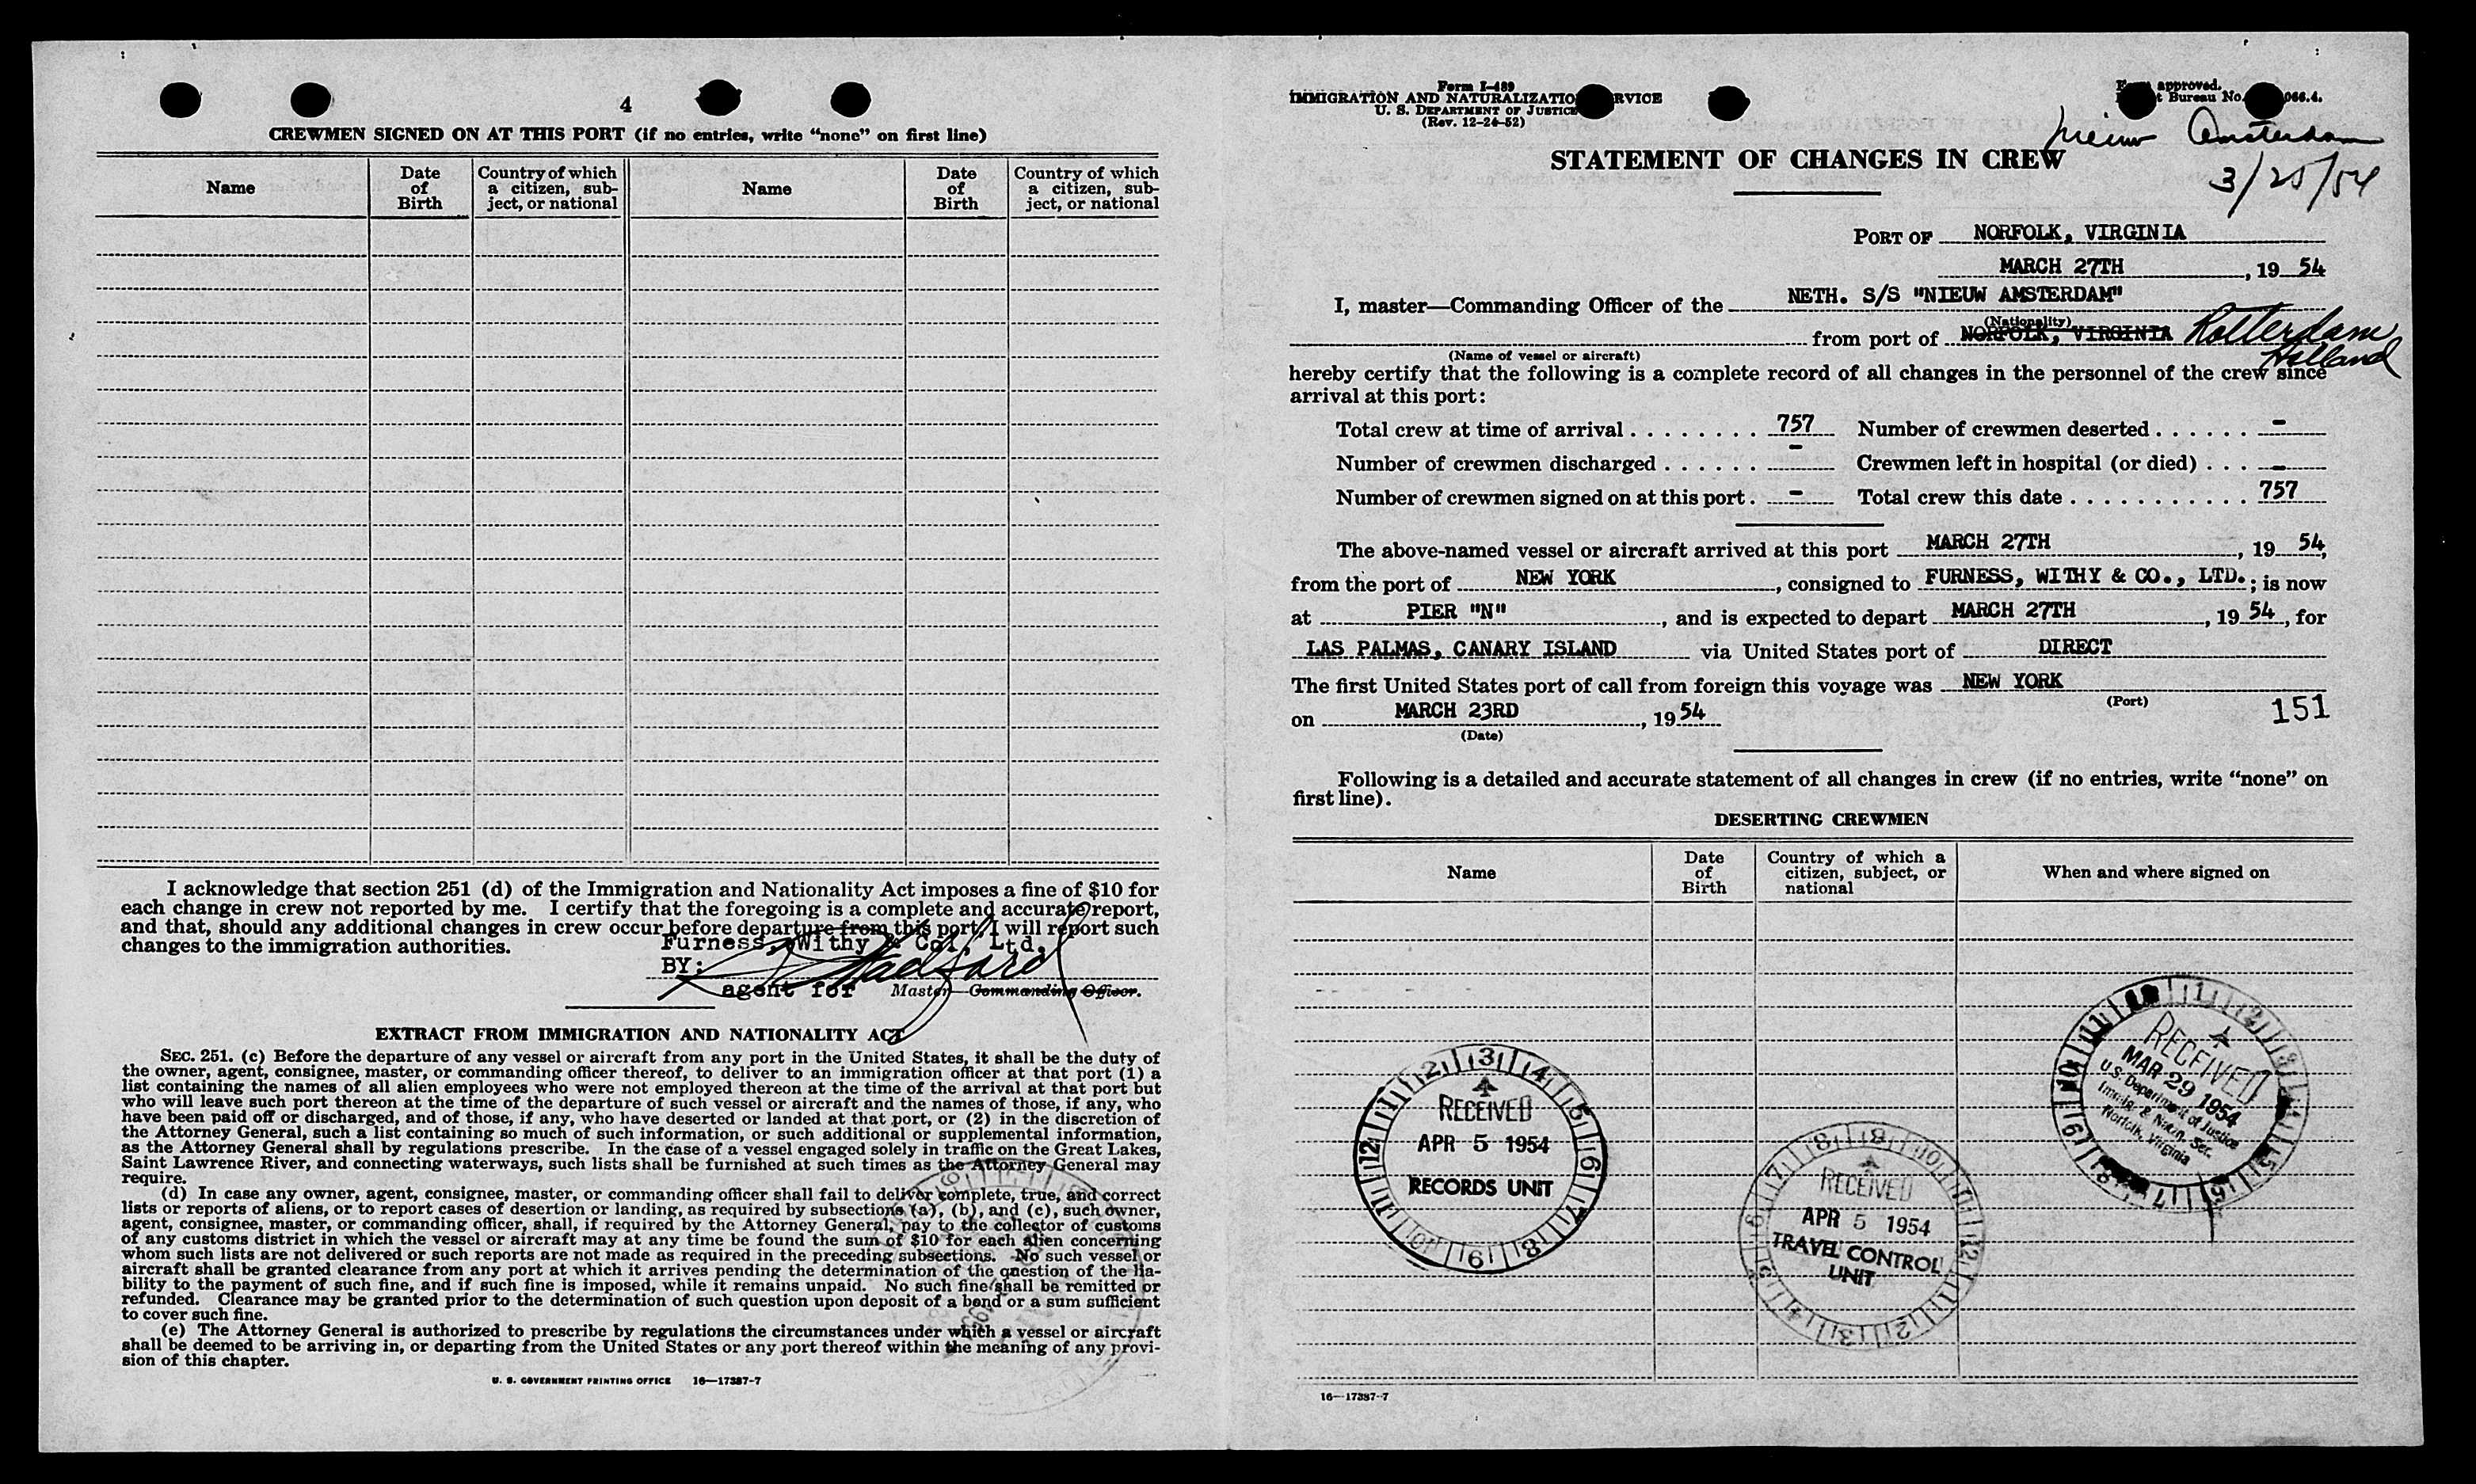 4
CREWMEN SIGNED ON AT THIS PORT (if no entries, write "none" on first line)
Name
Date of Birth
Country of which a citizen, sub-ject, or national
Name
Date of Birth
Country of which a citizen, sub-ject, or national
I acknowledge that section 251 (d) of the Immigration and Nationality Act imposes a fine of $10 for
each change in crew not reported by me. I certify that the foregoing is a complete and accurate report,
and that, should any additional changes in crew occur before departure from this port, I will report such
changes to the immigration authorities.
Furness, Withy & Co., Ltd.
BY:
agent for Master—Commanding Officer.
EXTRACT FROM IMMIGRATION AND NATIONALITY ACT
SEC. 251. (c) Before the departure of any vessel or aircraft from any port in the United States, it shall be the duty of
the owner, agent, consignee, master, or commanding officer thereof, to deliver to an immigration officer at that port (1) a
list containing the names of all alien employees who were not employed thereon at the time of the arrival at that port but
who will leave such port thereon at the time of the departure of such vessel or aircraft and the names of those, if any, who
have been paid off or discharged, and of those, if any, who have deserted or landed at that port, or (2) in the discretion of
the Attorney General, such a list containing so much of such information, or such additional or supplemental information,
as the Attorney General shall by regulations prescribe. In the case of a vessel engaged solely in traffic on the Great Lakes,
Saint Lawrence River, and connecting waterways, such lists shall be furnished at such times as the Attorney General may
require.
(d) In case any owner, agent, consignee, master, or commanding officer shall fail to deliver complete, true, and correct
lists or reports of aliens, or to report cases of desertion or landing, as required by subsections (a), (b), and (c), such owner,
agent, consignee, master, or commanding officer, shall, if required by the Attorney General, pay to the collector of customs
of any customs district in which the vessel or aircraft may at any time be found the sum of $10 for each alien concerning
whom such lists are not delivered or such reports are not made as required in the preceding subsections. No such vessel or
aircraft shall be granted clearance from any port at which it arrives pending the determination of the question of the lia-
bility to the payment of such fine, and if such fine is imposed, while it remains unpaid. No such fine shall be remitted or
refunded. Clearance may be granted prior to the determination of such question upon deposit of a bond or a sum sufficient
to cover such fine.
(e) The Attorney General is authorized to prescribe by regulations the circumstances under which a vessel or aircraft
shall be deemed to be arriving in, or departing from the United States or any port thereof within the meaning of any provi-
sion of this chapter.
U. S. GOVERNMENT PRINTING OFFICE 16—17387-7
Form I-489
IMMIGRATION AND NATURALIZATIO RVICE
U. S. DEPARTMENT OF JUSTICE
(Rev. 12-24-52)
approved.
t Bureau No. 066.4.
Nieuw Amsterdam
3/25/54
STATEMENT OF CHANGES IN CREW
PORT OF NORFOLK, VIRGINIA
MARCH 27TH, 19 54
I, master—Commanding Officer of the NETH. S/S "NIEUW AMSTERDAM"
(Nationality)
from port of NORFOLK, VIRGINIA Rotterdam
Holland
(Name of vessel or aircraft)
hereby certify that the following is a complete record of all changes in the personnel of the crew since
arrival at this port:
Total crew at time of arrival . . . . . . . . 757 Number of crewmen deserted . . . . . . -
Number of crewmen discharged . . . . . . - Crewmen left in hospital (or died) . . . -
Number of crewmen signed on at this port . - Total crew this date . . . . . . . . . . . 757
The above-named vessel or aircraft arrived at this port MARCH 27TH, 19 54,
from the port of NEW YORK, consigned to FURNESS, WITHY & CO., LTD.; is now
at PIER "N", and is expected to depart MARCH 27TH, 19 54, for
LAS PALMAS, CANARY ISLAND via United States port of DIRECT
The first United States port of call from foreign this voyage was NEW YORK
(Port)
151
on MARCH 23RD, 19 54
(Date)
Following is a detailed and accurate statement of all changes in crew (if no entries, write "none" on
first line).
DESERTING CREWMEN
Name
Date of Birth
Country of which a citizen, subject, or national
When and where signed on
RECEIVED
MAR 29 1954
U.S. Department of Justice
Immig. & Natzn. Ser.
Norfolk, Virginia
RECEIVED
APR 5 1954
RECORDS UNIT
RECEIVED
APR 5 1954
TRAVEL CONTROL
UNIT
16—17387-7